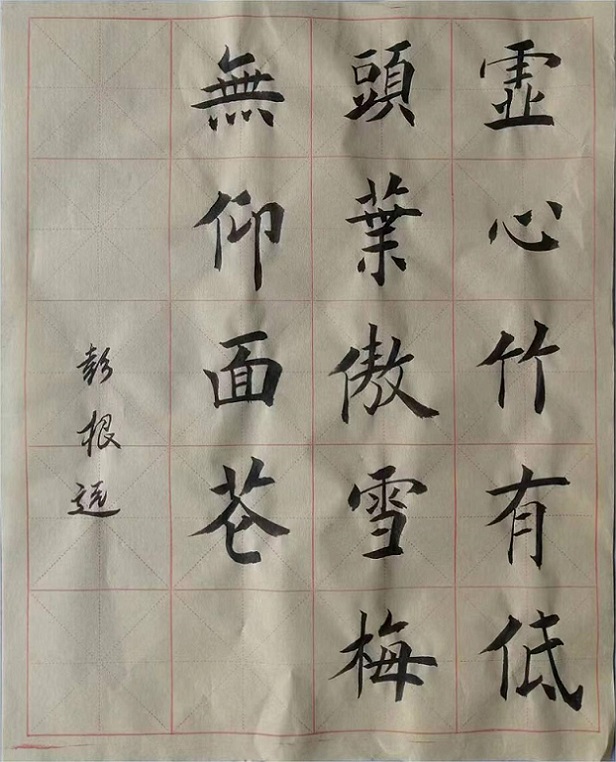 虚心竹有低
頭葉傲雪梅
無仰面花
彭根远